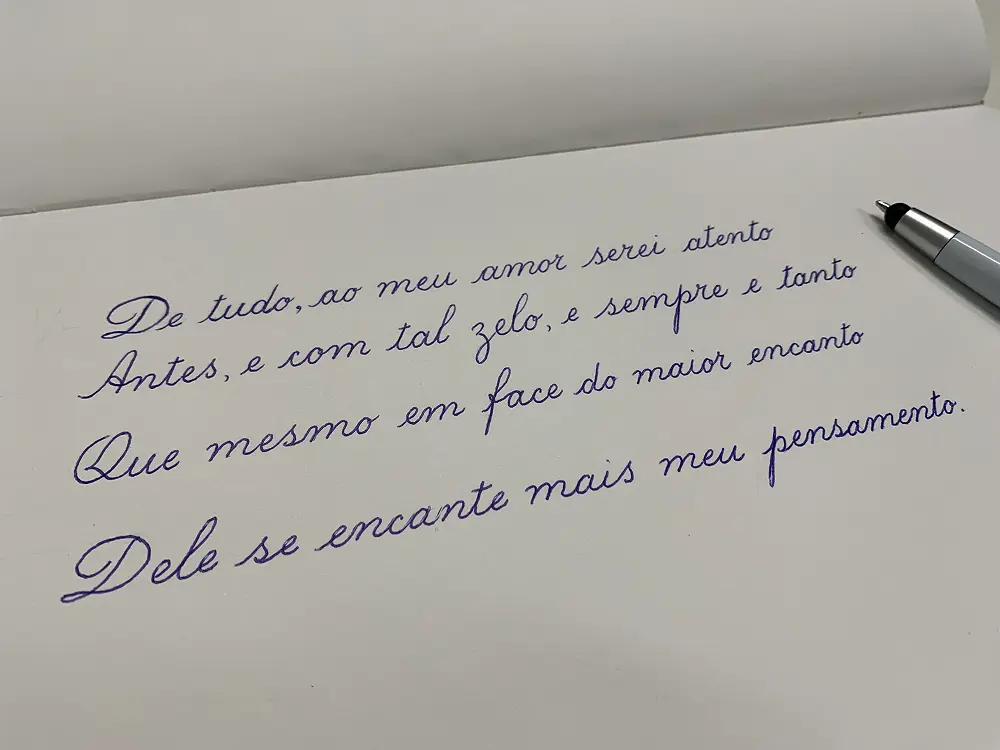 De tudo, ao meu amor serei atento
Antes, e com tal zelo, e sempre e tanto
Que mesmo em face do maior encanto
Dele se encante mais meu pensamento.